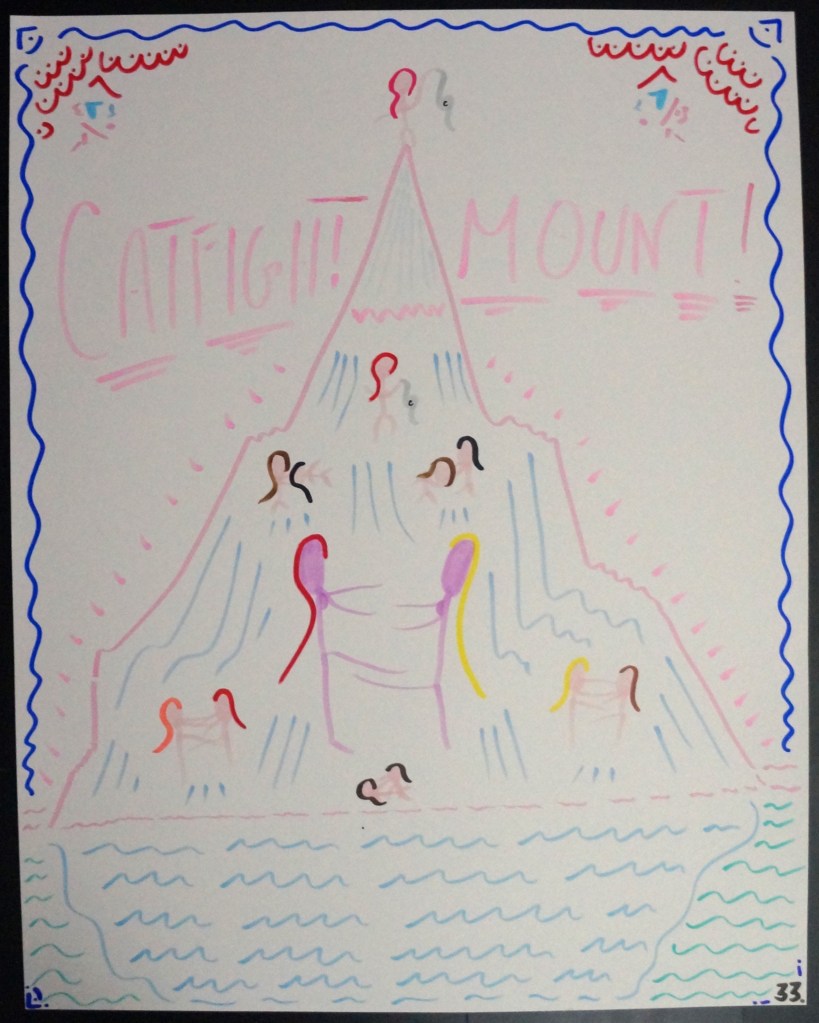 CATFIGHT! MOUNT!
33.